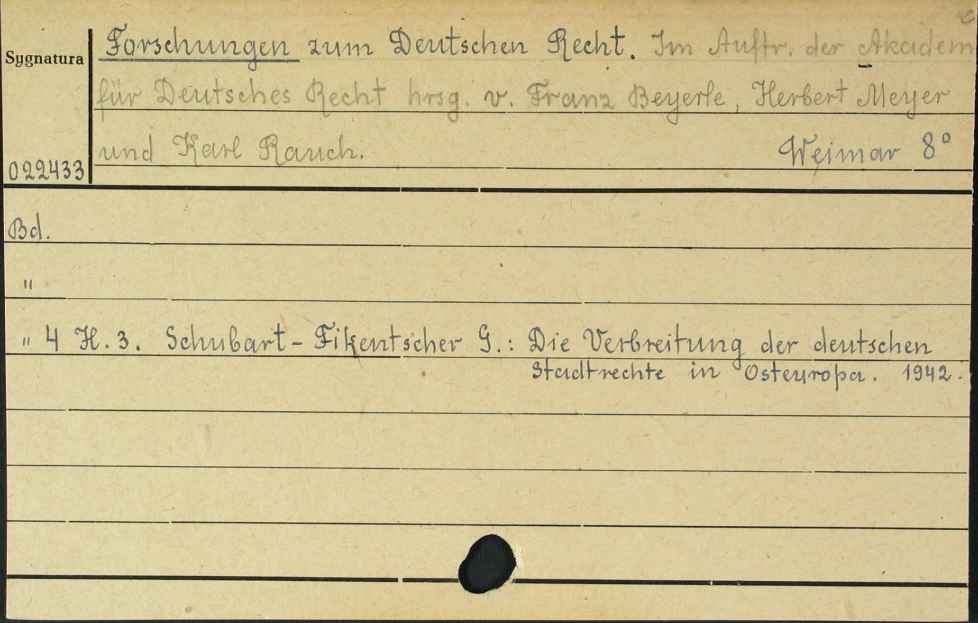 Sygnatura
022433
Forschungen zum Deutschen Recht. Im Auftr. der Akadem
für Deutsches Recht hrsg. v. Franz Beyerle, Herbert Meyer
und Karl Rauch. Weimar 8°
Bd.
"
" 4 H. 3. Schubart-Fikentscher G.: Die Verbreitung der deutschen
Stadtrechte in Osteuropa. 1942.